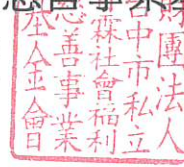 財團法人
台中市私立
霖社會福利
慈善事業
基金會